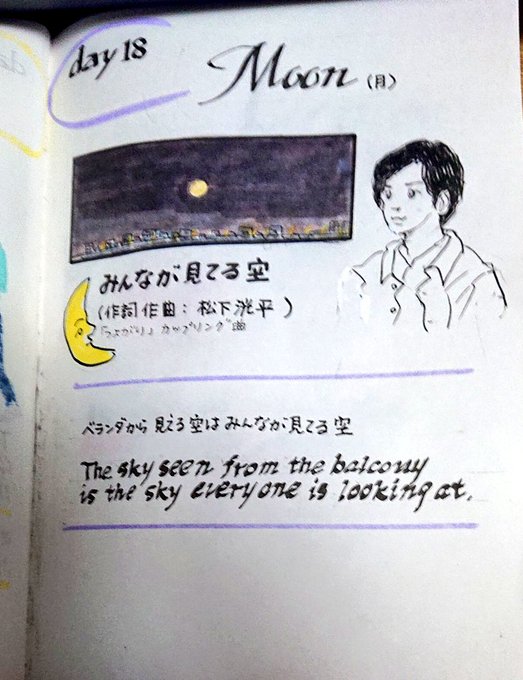 day 18
Moon (月)
みんなが見てる空
(作詞作曲: 松下洸平)
「つよがり」カップリング曲
ベランダから見える空はみんなが見てる空
The sky seen from the balcouy
is the sky everyone is looking at.